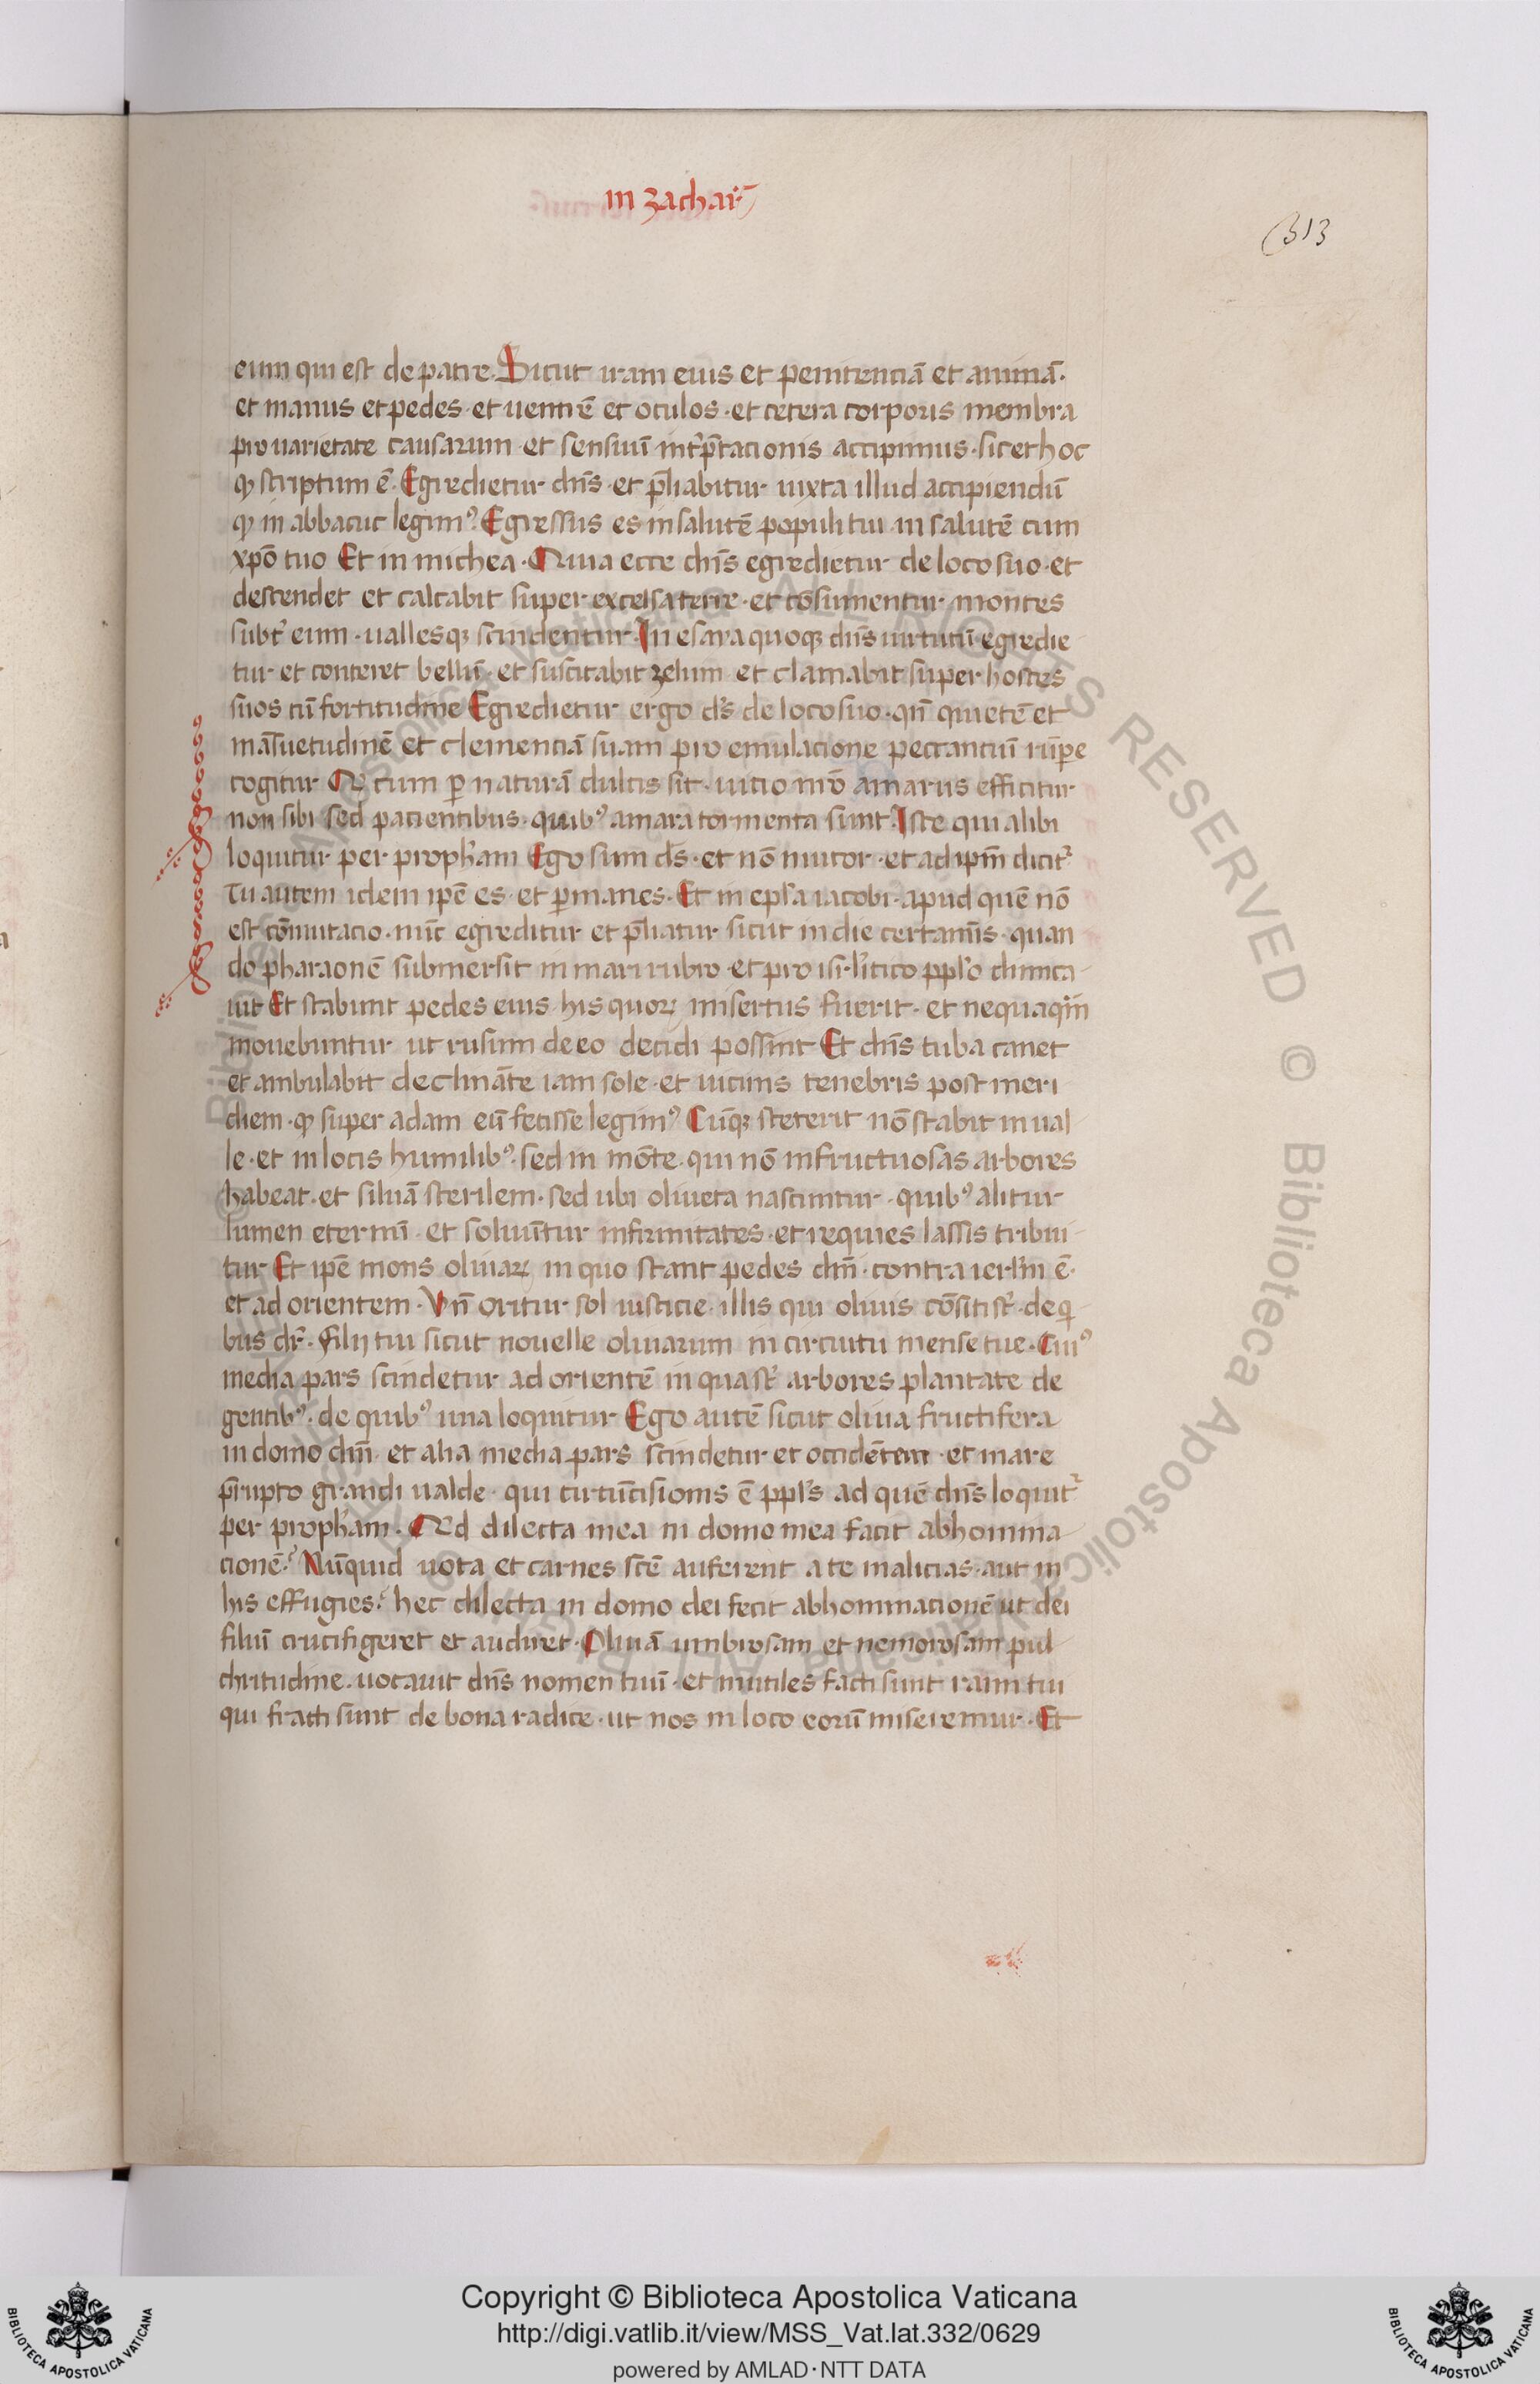 in zachar̄
313
eum qui est de patre. Sicut iram eius et penitenciā et animā.
et manus et pedes · et uentrē et oculos · et cetera corporis membra
pro uarietate causarum · et sensuū int̾p̄tacionis accipimus · sic et hoc
ꝙ scriptum ē. Egredietur dn̄s · et p̄liabitur iuxta illud accipiendū
ꝙ in abbacuc legimꝰ. Egressus es in salutē populi tui in salutē cum
xp̄o tuo Et in michea · Quia ecce dn̄s egredietur de loco suo · et
descendet et calcabit super excelsa terre · et cōsumentur montes
subt̾ eum · uallesqꝫ scindentur. In esaia quoqꝫ dn̄s uirtutū · egredie
tur et conteret bellū · et suscitabit zelum et clamabit super hostes
suos cū fortitudine Egredietur ergo ds̄ de loco suo · qn̄ quietē et
māsuetudinē et clemenciā suam pro emulacione peccantiū rūpe
cogitur Et cum ꝑ naturā dulcis sit · uicio nr̄o amarus efficitur
non sibi sed pacientibus · quibꝰ amara tormenta sunt. Iste qui alibi
loquitur per proph̄am Ego sum ds̄ · et nō mutor · et ad ip̄m dicit̾
Tu autem idem ip̄e es · et ꝑmanes. Et in epl̄a iacobi · apud quē nō
est cōmutacio · nūc egreditur et p̄liatur sicut in die certamīs · quan
do pharaonē submersit in mari rubro · et pro isrl̄itico ppl̄o dimica
uit Et stabunt pedes eius his quoꝝ misertus fuerit · et nequaq̄m
mouebuntur ut rusum de eo decidi possint Et dn̄s tuba canet
et ambulabit declināte iam sole · et uicinis tenebris post meri
diem · ꝙ super adam eū fecisse legimꝰ Cūqꝫ steterit nō stabit in ual
le · et in locis humilibꝰ · sed in mōte · qui nō infructuosas arbores
habeat · et siluā sterilem · sed ubi oliueta nascuntur · quibꝰ alitur
lumen eternū · et soluūtur infirmitates · et requies lassis tribui
tur Et ip̄e mons oliuaꝝ in quo stant pedes dn̄i · contra ierl̄m ē ·
et ad orientem · Vn̄ oritur sol iusticie · illis qui oliuis cōsiti st̾ · de q̄
bus dr̄ · Filij tui sicut nouelle oliuarum in circuitu mense tue · Cuiꝰ
media pars scindetur ad orientē in qua st̾ arbores plantate de
gentibꝰ · de quibꝰ una loquitur Ego autē sicut oliua fructifera
in domo dn̄i · et alia media pars scindetur et occidētem · et mare
p̄rupto grandi ualde · qui circūcisionis ē ppl̄s ad quē dn̄s loquit̾
per proph̄am. Qd dilecta mea in domo mea facit abhomina
cionē? Nūquid uota et carnes scē auferent a te malicias · aut in
his effugies? hec dilecta in domo dei fecit abhominacionē ut dei
filiū crucifigeret et audiret · Oliuā umbrosam et nemorosam pul
chritudine · uocauit dn̄s nomen tuū · et inutiles facti sunt rami tui
qui fracti sunt de bona radice · ut nos in loco eorū insereremur · Et
Copyright © Biblioteca Apostolica Vaticana
http://digi.vatlib.it/view/MSS_Vat.lat.332/0629
powered by AMLAD·NTT DATA